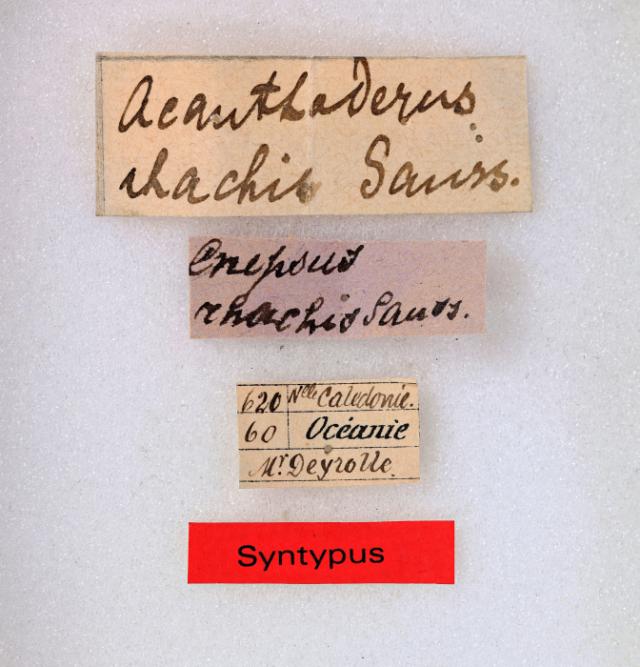 Acanthoderus
rhachis Sauss.
Cnepsus
rhachis Sauss.
620 Nlle Calédonie.
60 Océanie
Mr. Deyrolle.
Syntypus